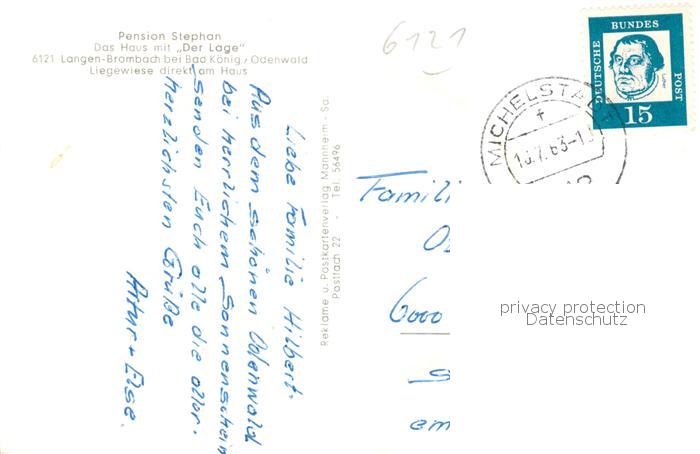 Pension Stephan
Das Haus mit „Der Lage"
6121 Langen-Brombach bei Bad König/Odenwald
Liegewiese direkt am Haus
6121
DEUTSCHE BUNDES POST
Luther
15
MICHELSTADT
.7.63-1
Liebe Familie Hilbert.
Aus dem schönen Odenwald
bei herrlichem Sonnenschein
senden Euch alle die aller.
herzlichsten Grüße
Artur + Else.
Reklame u. Postkartenverlag Mannheim - Sa
Postfach 22 - Tel. 56496
Famili
6000
em
privacy protection
Datenschutz